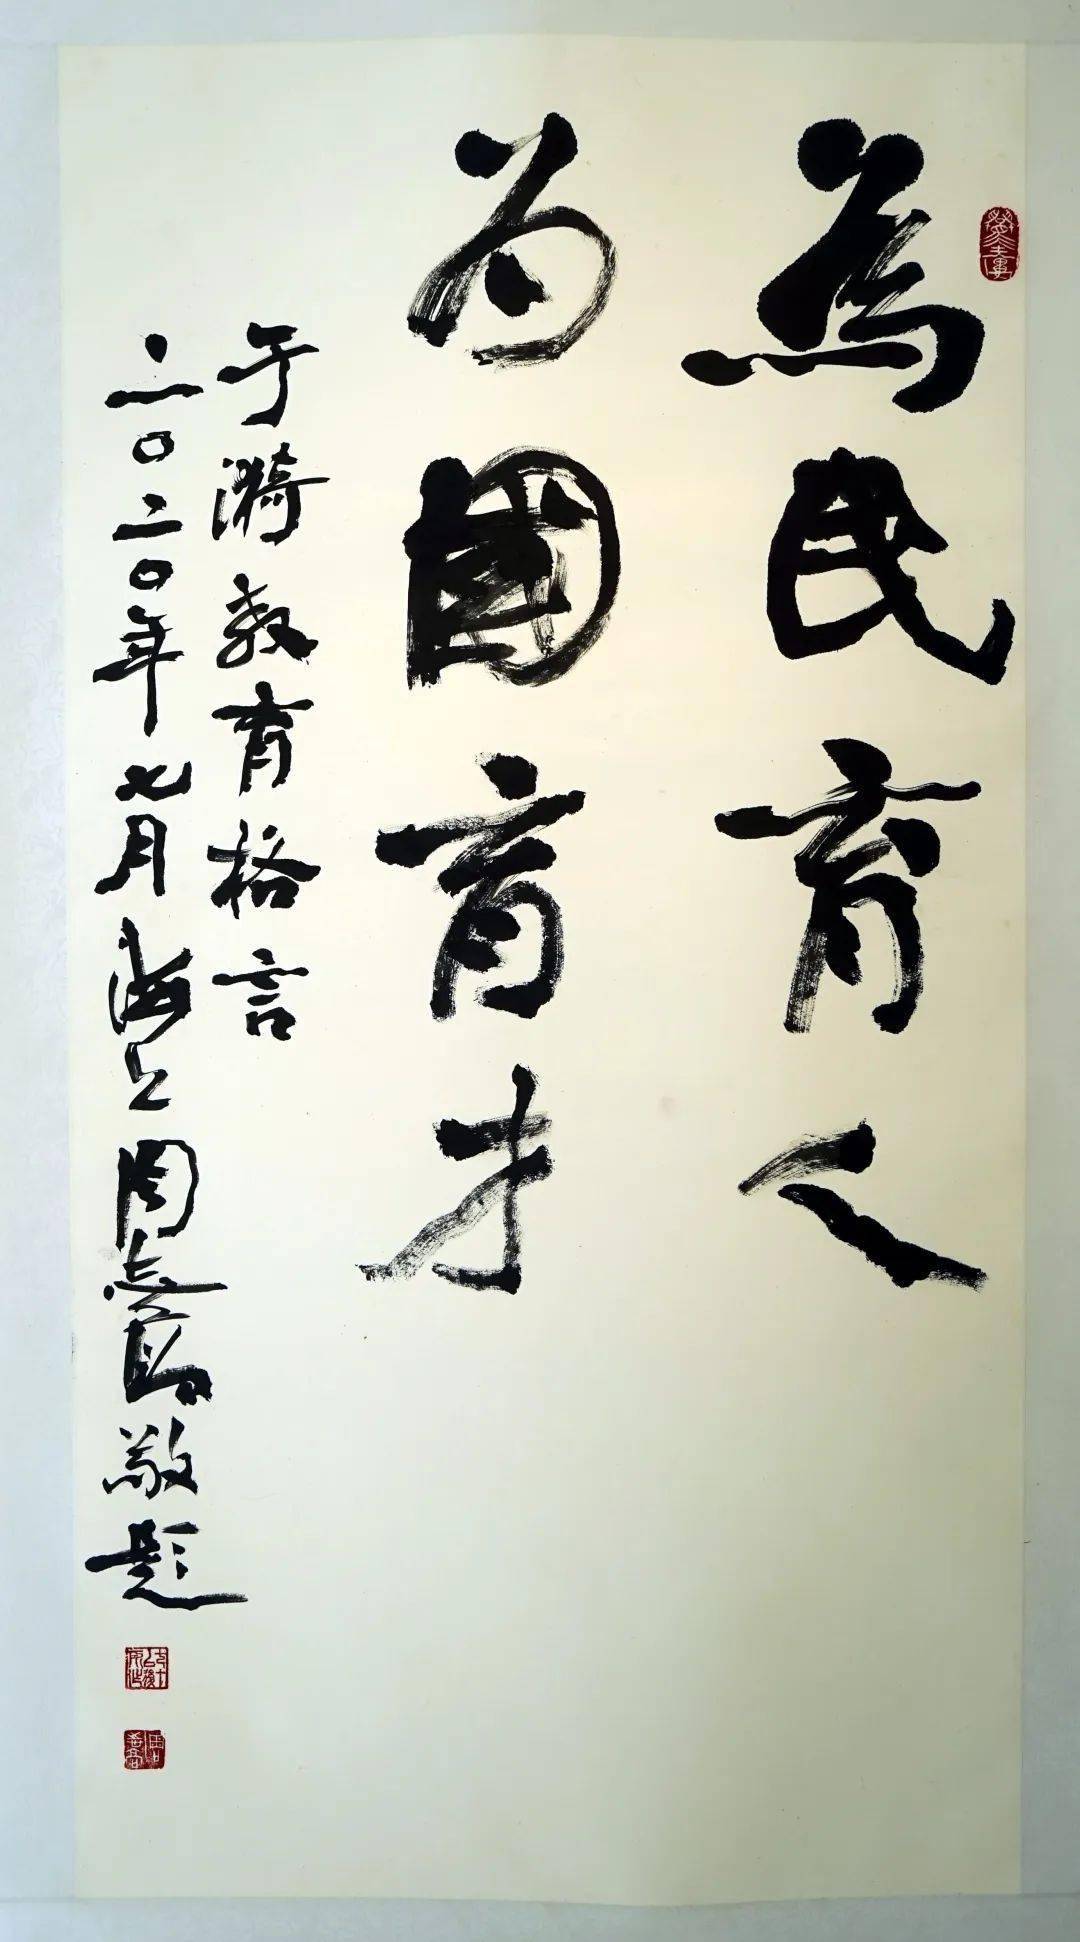 為民育人
为國育才
于漪教育格言
二〇二〇年七月海上周志高敬題